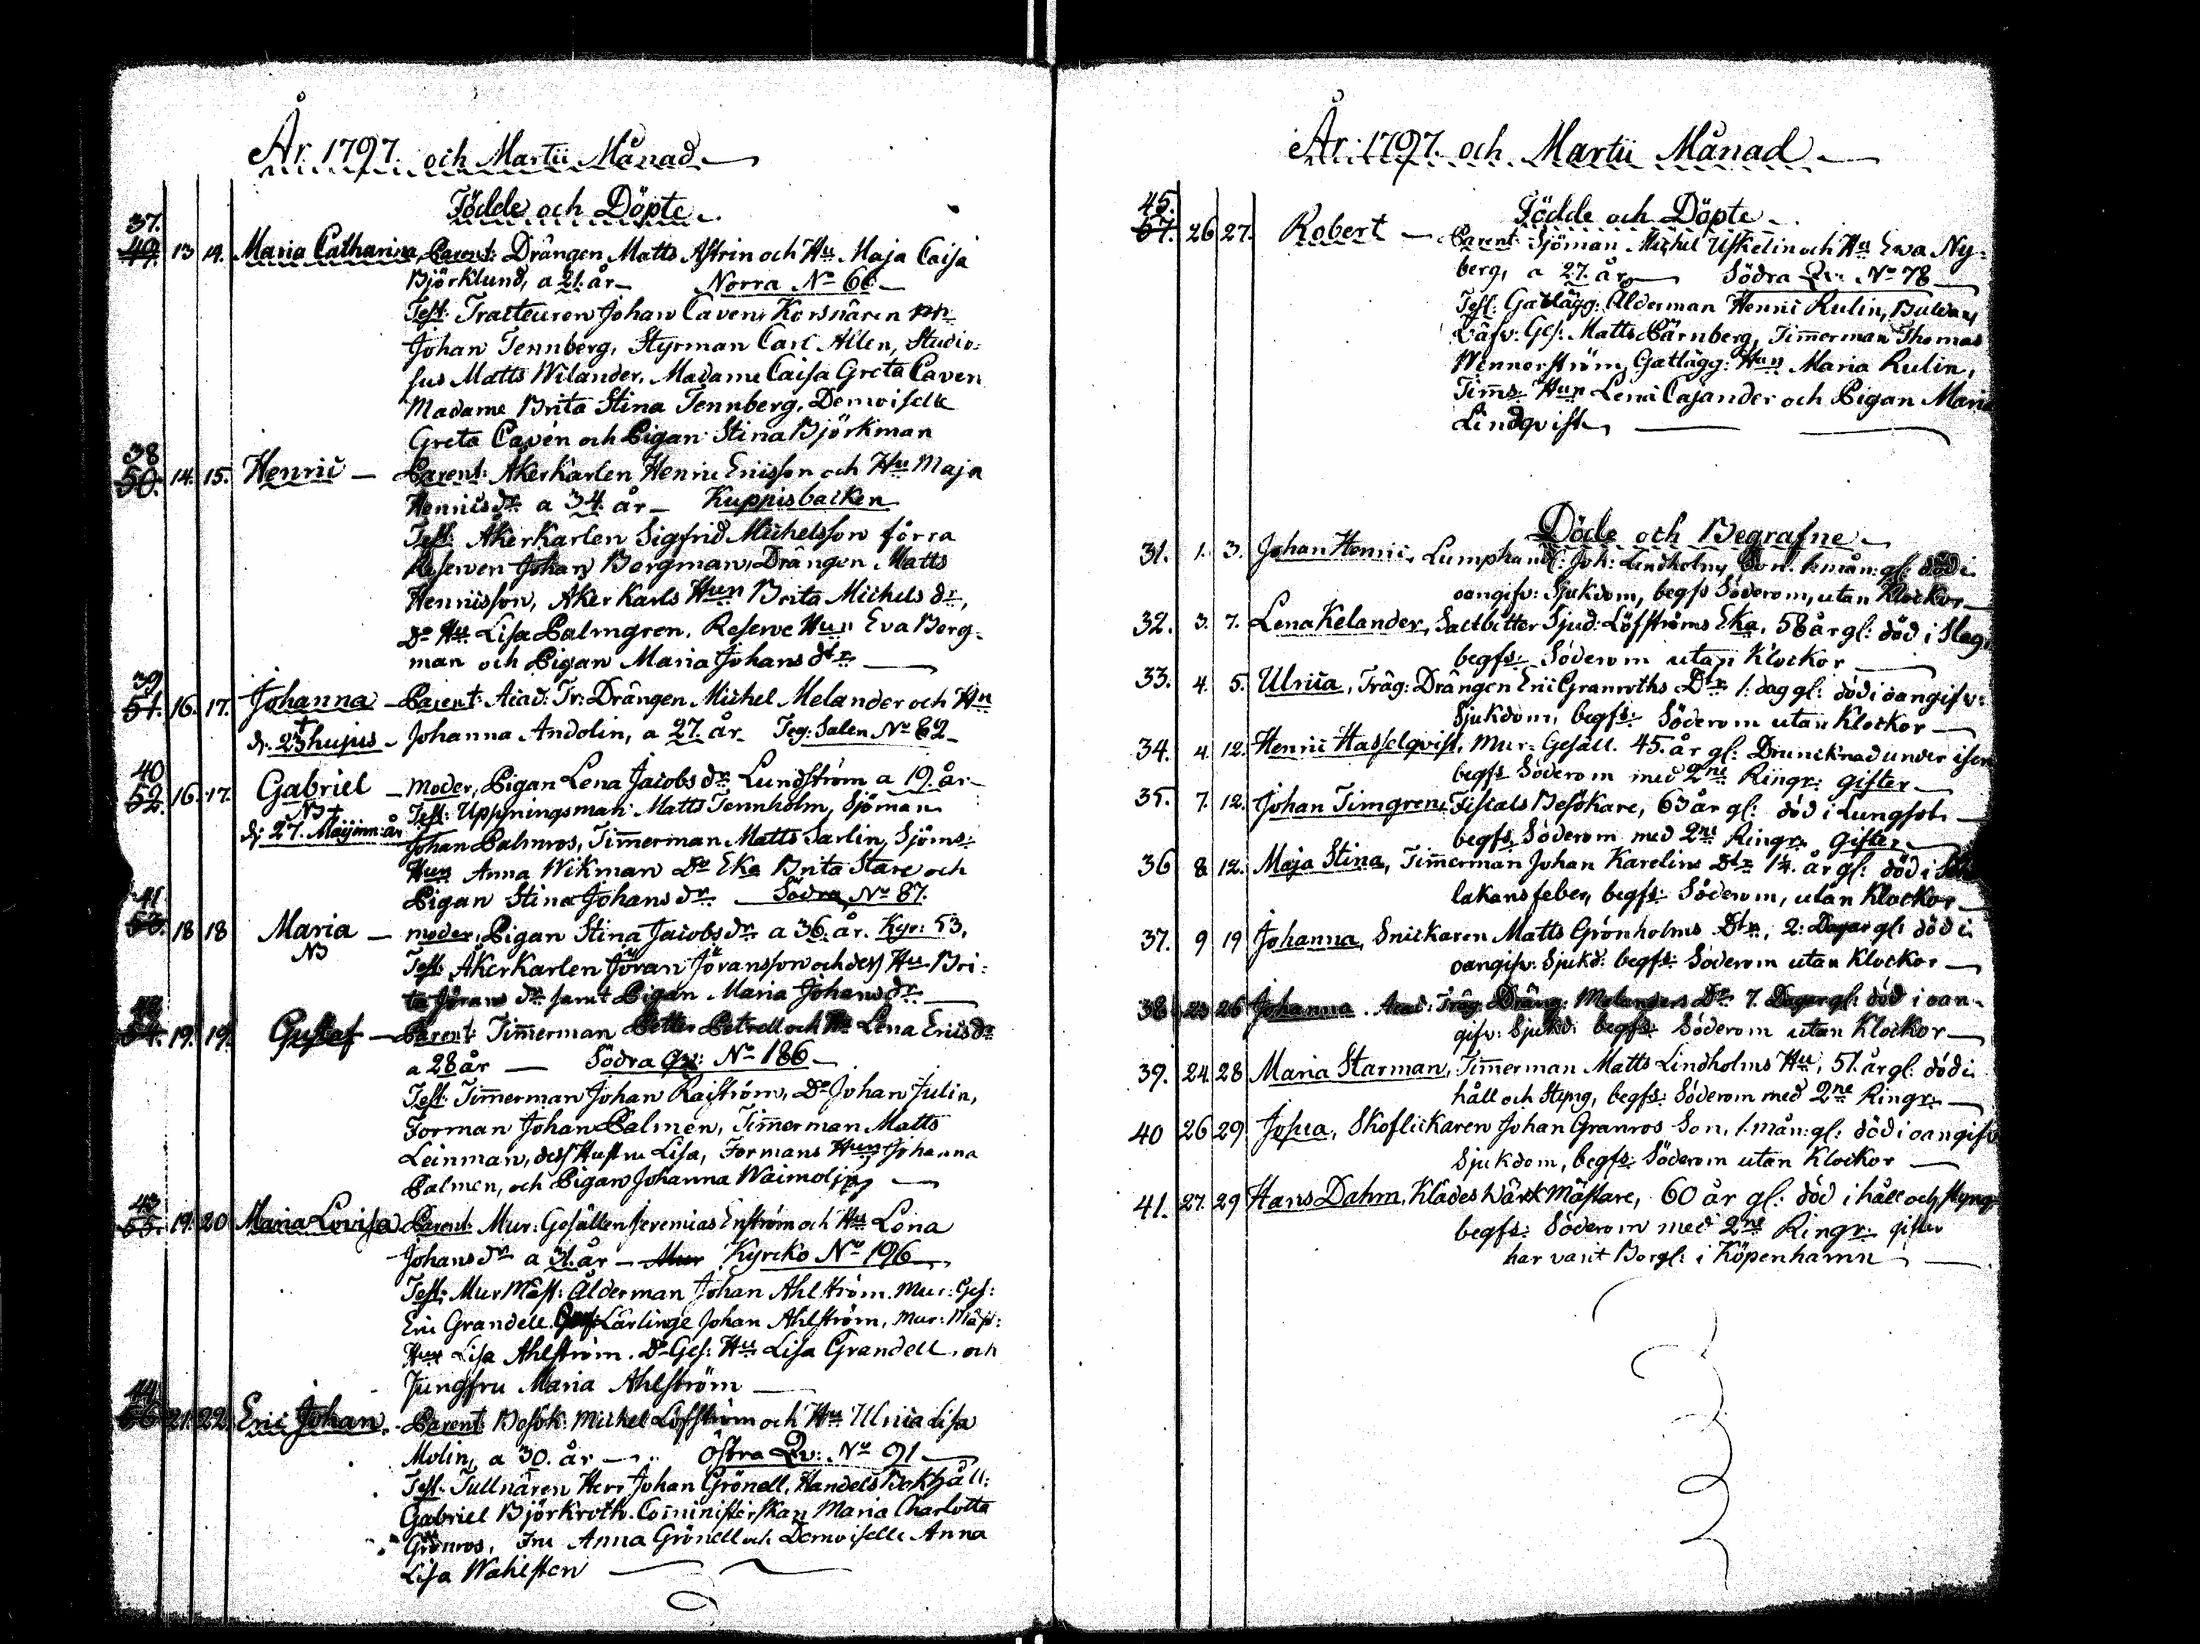 År 1797. och Martii Månad
Födde och Döpte
37.
49. 13 14. Maria Catharina, Parent: Drängen Matts Astrin och Hu Maja Caisa
Björklund, a 21. år — Norra No 66 —
Test: Tracteuren Johan Caven, Konstnären
Johan Tennberg, Styrman Carl Allen, Studio-
sus Matts Wilander, Madame Caisa Greta Caven
Madame Brita Stina Tennberg, Demoiselle
Greta Cavén och Pigan Stina Björkman
38
50. 14. 15. Henric — Parent: Åkerkarlen Henric Ericsson och Hu Maja
Henrics dr a 34 år — Kuppisbacken
Test: Åkerkarlen Sigfrid Michelsson förra
Reserven Johan Bergman, Drängen Matts
Henricsson, Åkerkarls Hun Brita Michels dr,
Do Hu Lisa Palmgren. Reserve Hun Eva Berg-
man och Pigan Maria Johans dtr —
39
51. 16. 17. Johanna — Parent: Acad: Tr: Drängen Michel Melander och Hu
d. 23 hujus — Johanna Andolin, a 27. år — Teg: Salen No 62 —
40
52. 16. 17. Gabriel — Moder, Pigan Lena Jacobs dr Lundström a 19. år —
NB †
Test: Uppsyningsman Matts Tennholm, Sjöman
d: 27. Maij inn: år
Johan Palmros, Timmerman Matts Sarlin, Sjöms:
Hun Anna Wikman Do Eka Brita Stare och
Pigan Stina Johans dr — Södra No 87.
41
53. 18 18 Maria — moder, Pigan Stina Jacobs dr a 36. år. Kyr: 53,
NB
Test: Åkerkarlen Jöran Jöransson och dess Hu Bri-
ta Jörans dr samt Pigan Maria Johans dr —
42
54. 19. 19. Gustaf — Parent: Timmerman Petter Petrell och Hu Lena Erics dr
a 28 år — Södra Qv: No 186 —
Test: Timmerman Johan Raiström, Do Johan Julin,
Forman Johan Palmen, Timmerman Matts
Leinman, dess Hustru Lisa, Formans Hun Johanna
Palmen, och Pigan Johanna —
43
55. 19. 20 Maria Lovisa Parent: Mur: Gesällen Jeremias Enström och Hu Lena
Johans dr a 31. år — Mur Kyrcko No 196 —
Test: Mur Mäst: Ålderman Johan Ahlström. Mur: Ges:
Eric Grandell. Lärlinge Johan Ahlström, Mur: Mäst:
Hun Lisa Ahlström. Do Ges: Hu Lisa Grandell, och
Jungfru Maria Ahlström —
44
56 21. 22. Eric Johan. Parent: Besök: Michel Löfström och Hu Ulrica Lisa
Molin, a 30. år — Östra Qv: No 91 —
Test: Tullnären Herr Johan Grönell, Handels Bokhåll:
Gabriel Björkroth. Comministerskan Maria Charlotta
Grönros, Fru Anna Grönell och Demoiselle Anna
Lisa Wahlsten —
År 1797. och Martii Månad —
Födde och Döpte
45.
57. 26 27. Robert — Parent: Sjöman Michel Uskelin och Hu Ewa Ny-
berg, a 27. år — Södra Qv: No 78 —
Test: Gatlägg: Ålderman Henric Rulin,
Ges: Matts Pärnberg, Timmerman Thomas
Wennerström, Gatlägg: Hun Maria Rulin,
Timms Hun Lena Cajander och Pigan Maria
Lindqvist —
Döde och Begrafne —
31. 1. 3. Johan Henric, Lumphandl: Joh: Lindholms Son. 1. mån: gl: död i
oangifv: Sjukdom, begfs Söderom, utan Klockor —
32. 3. 7. Lena Kelander, Saltbitter Sjud: Löfströms Eka, 58 år gl: död i Slag,
begfs: Söderom utan Klockor —
33. 4. 5. Ulrica, Träg: Drängen Eric Granroths Dtr 1. dag gl: död i oangifv:
Sjukdom, begfs: Söderom utan Klockor —
34. 4. 12. Henric Hasselqvist, Mur: Gesäll. 45. år gl: Druncknad under isen
begfs Söderom med 2ne Ringr: gifter —
35. 7. 12. Johan Timgren, Fiscals Besökare, 63 år gl: död i Lungsot —
begfs: Söderom med 2ne Ringr. Gifter —
36 8 12. Maja Stina, Timmerman Johan Karelins Dtr 1¼. år gl: död i
lakansfeber, begfs: Söderom, utan Klockor —
37. 9 19 Johanna, Snickaren Matts Grönholms Dtr, 2: Dagar gl: död i
oangifv: Sjukd: begfs: Söderom utan Klockor —
38 23 26 Johanna. Acad: Träg: Dräng: Melanders Dr 7. Dagar gl: död i oan-
gifv: Sjukd: begfs: Söderom utan Klockor —
39. 24 28 Maria Starman, Timmerman Matts Lindholms Hu, 51. år gl: död i
håll och Styng, begfs: Söderom med 2ne Ringr: —
40 26 29 Josua, Skoflickaren Johan Granros Son, 1. mån: gl: död i oangifv
Sjukdom, begfs: Söderom utan Klockor —
41. 27. 29 Hans Dahm, Klädes Wärk Mästare, 60 år gl: död i håll och styng
begfs: Söderom med 2ne Ringr: gifter
har varit Borgl: i Köpenhamn —